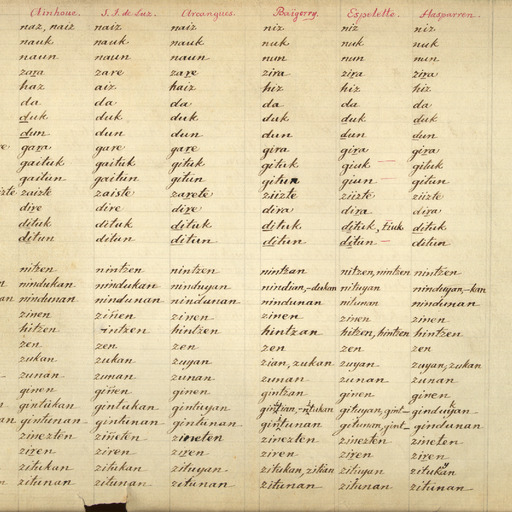 Ainhoue. S. J. de Luz. Arcangues. Baigorry. Espelette. Hasparren.
naz, naiz naiz naiz niz niz niz
nauk nauk nauk nuk nuk nuk
naun naun naun nun nun nun
zara zare zare zira zira zira
haz aiz haiz hiz hiz hiz
da da da da da da
duk duk duk duk duk duk
dun dun dun dun dun dun
gara gare gare gira gira gira
gaituk gaituk gituk gituk giuk — gituk
gaitun gaitun gitun gitun giun — gitun
zaizte zaiste zarete ziizte ziizte ziizte
dire dire dire dira dira dira
dituk dituk dituk dituk dituk, tiuk dituk
ditun ditun ditun ditun ditun — ditun
nitzen nintzen nintzen nintzan nitzen, nintzen nintzen
nindukan nindukan ninduyan nindian, -dukan nituyan ninduyan, -kan
nindunan nindunan nindunan nindunan nitunan nindunan
zinen ziñen zinen zinen zinen zinen
hitzen intzen hintzen hintzan hitzen, hintzen hintzen
zen zen zen zen zen zen
zukan zukan zuyan zian, zukan zuyan zuyan, zukan
zunan zunan zunan zunan zunan zunan
ginen giñen ginen gintzan ginen ginen
gintukan gintukan gintuyan gintian, -ntukan gituyan, gint— ginduyan
gintunan gintunan gintunan gintunan gitunan, gint— gindunan
zinezten zineten zineten zinezten zinezten zineten
ziren ziren ziren ziren ziren ziren
zitukan zitukan zituyan zitukan, zitian zituyan zitukan
zitunan zitunan zitunan zitunan zitunan zitunan